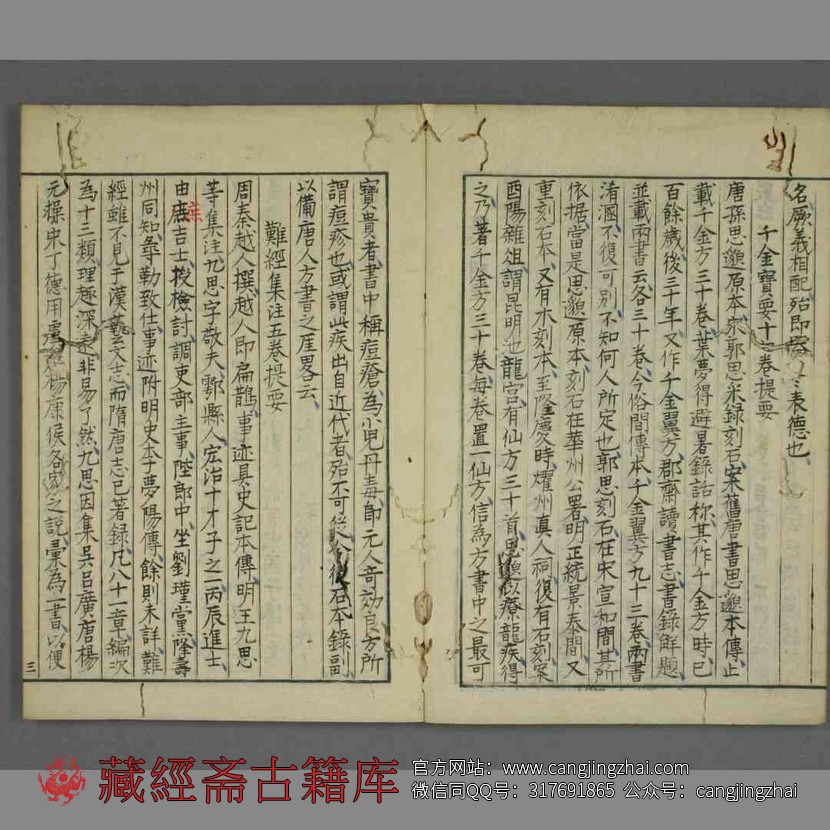 名厥義相配殆即㗖表德也
千金寶要十卷提要
唐孫思邈原本宋郭思采錄刻石案舊唐書思邈本傳止
載千金方三十卷葉夢得避暑錄話稱其作千金方時已
百餘歲後三十年又作千金翼方郡齋讀書志書錄解題
並載兩書云各三十卷今俗間傳本千金翼方九十三卷兩書
淆溷不復可別不知何人所定也郭思刻石在宋宣和間其所
依据當是思邈原本刻石在華州公署明正統景泰間又
重刻石本又有木刻本至隆慶時燿州真人祠復有石刻案
酉陽雜俎謂昆明池龍宮有仙方三十首思邈以療龍疾得
之乃著千金方三十卷每卷置一仙方信為方書中之最可
寶貴者書中稱痘瘡為小兒丹毒即元人奇効良方所
謂痘疹也或謂此疾出自近代者殆不可從今從石本錄副
以備唐人方書之厓畧云
難經集注五卷提要
周秦越人撰越人即扁鵲事迹具史記本傳明王九思
等集注九思字敬夫鄠縣人宏治十才子之一丙辰進士
由庶吉士授檢討調吏部主事陞郎中坐劉瑾黨降壽
州同知尋勒致仕事迹附明史李夢陽傳餘則未詳難
經雖不見于漢藝文志而隋唐志已著錄凡八十一章編次
為十三類理趣深遠非易了然九思因集吳呂廣唐楊
元操宋丁德用虞庶楊康侯各家之說彙為一書以便
三
藏經斋古籍库
官方网站：www.cangjingzhai.com
微信同QQ号：317691865 公众号：cangjingzhai